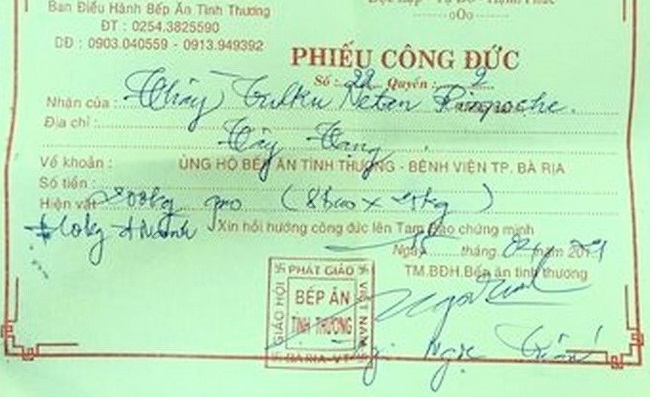 Ban Điều Hành Bếp Ăn Tình Thương
ĐT : 0254.3825590
DĐ : 0903.040559 - 0913.949392
oOo
PHIẾU CÔNG ĐỨC
Số : 22 Quyển : 2
Nhận của : Thầy Tulku Neten Rinpoche.
Địa chỉ :
Tây Tạng
Về khoản : ỦNG HỘ BẾP ĂN TÌNH THƯƠNG - BỆNH VIỆN TP. BÀ RỊA
Số tiền :
Hiện vật 200kg gạo (8 bao x 25kg)
Xin hồi hướng công đức lên Tam Bảo chứng minh
Ngày tháng 04
TM.BĐH.Bếp ăn tình thương
GIÁO HỘI PHẬT GIÁO VIỆT NAM
BẾP ĂN
TÌNH THƯƠNG
BÀ RỊA-VT
Ngọc